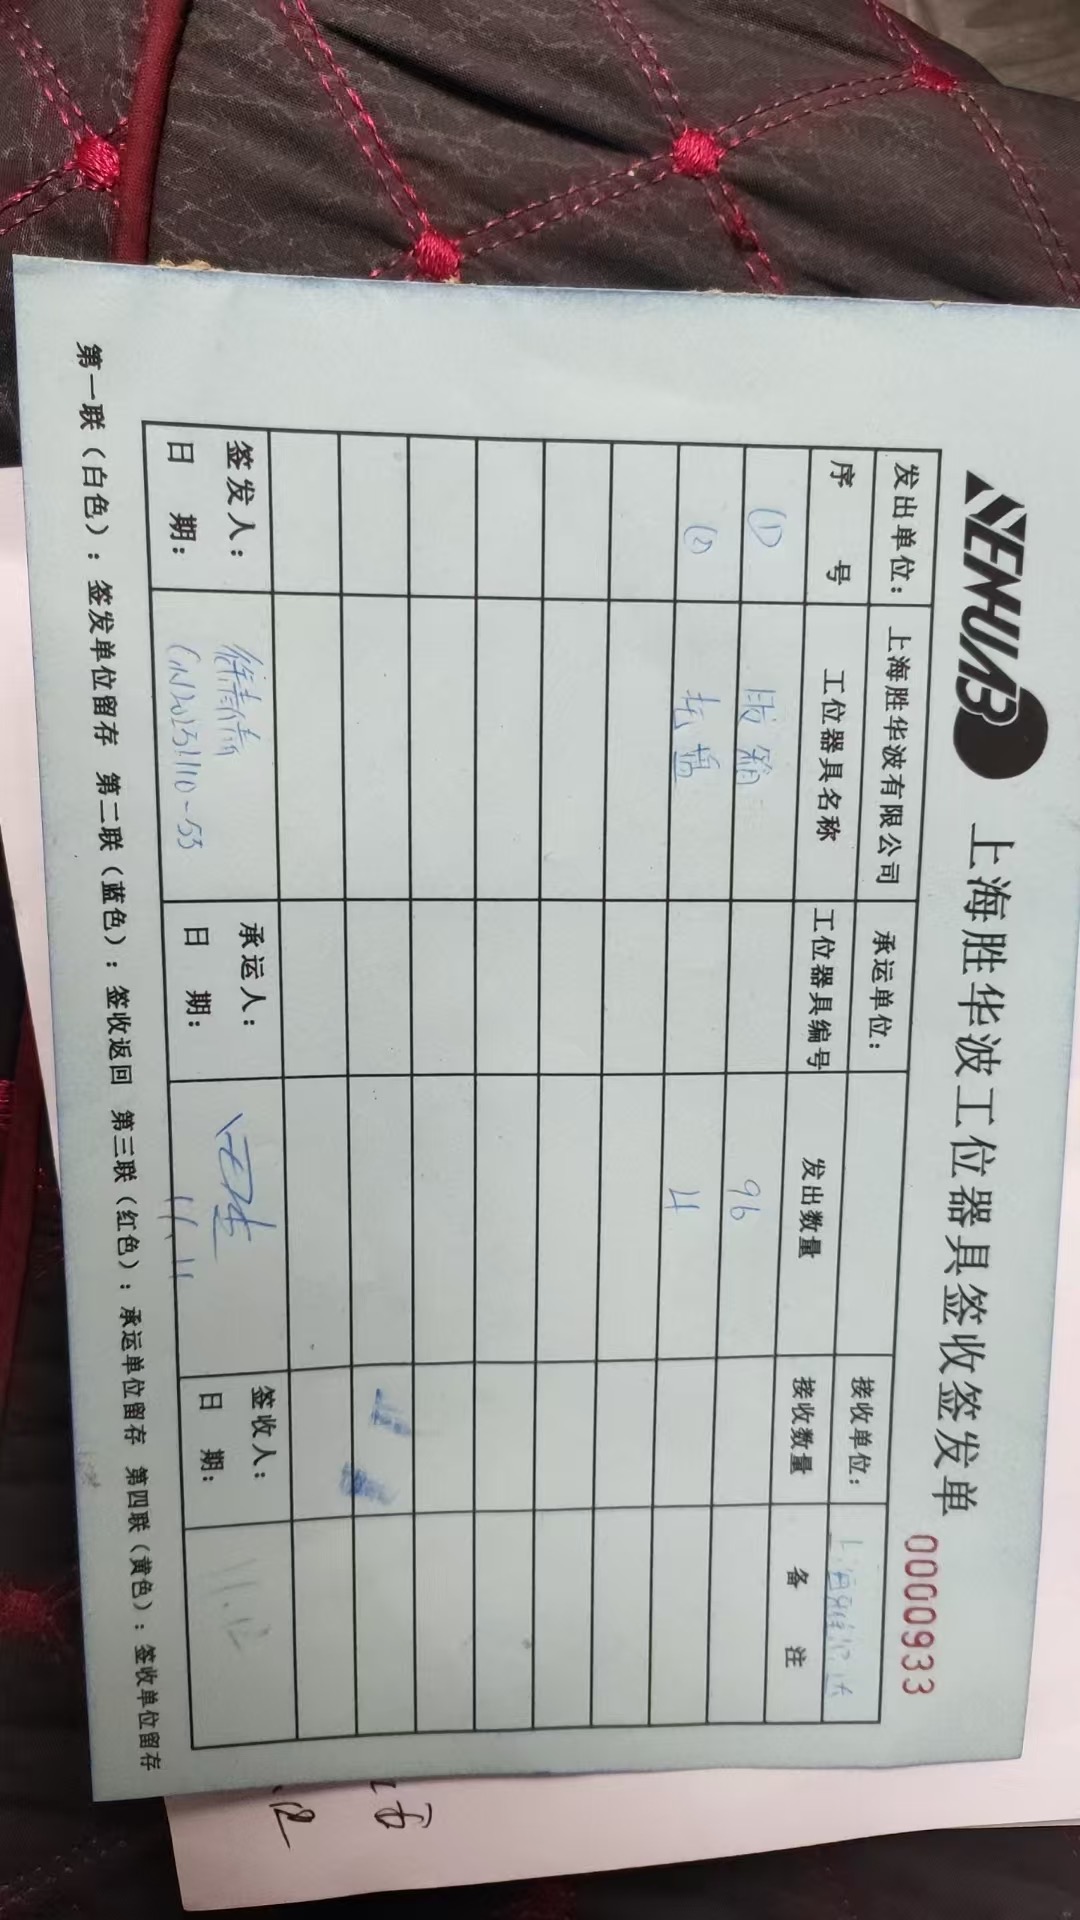 SENHUAB 上海胜华波工位器具签收签发单
0000933
发出单位: 上海胜华波有限公司 承运单位: 接收单位:
序号 工位器具名称 工位器具编号 发出数量 接收数量 备注
① 胶箱 96
② 托盘 4
签发人: 承运人: 签收人:
日期: CN20231110-53 日期: 11.11 日期: 11.12
第一联(白色): 签发单位留存 第二联(蓝色): 签收返回 第三联(红色): 承运单位留存 第四联(黄色): 签收单位留存